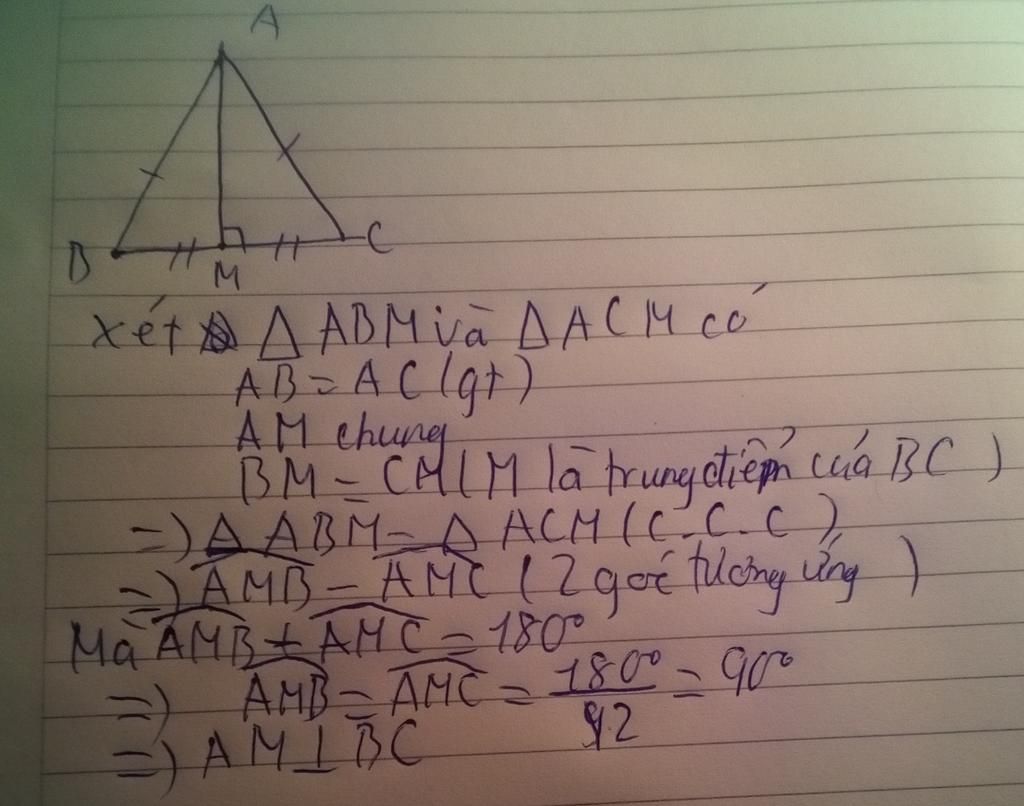 A
B
M
C
Xét Δ ABM và Δ ACM có
AB = AC (gt)
AM chung
BM = CM (M là trung điểm của BC)
=) Δ ABM = Δ ACM (C-C-C)
=) AMB = AMC (2 góc tương ứng)
Mà AMB + AMC = 180°
=) AMB = AMC = 180°/2 = 90°
=) AM ⊥ BC